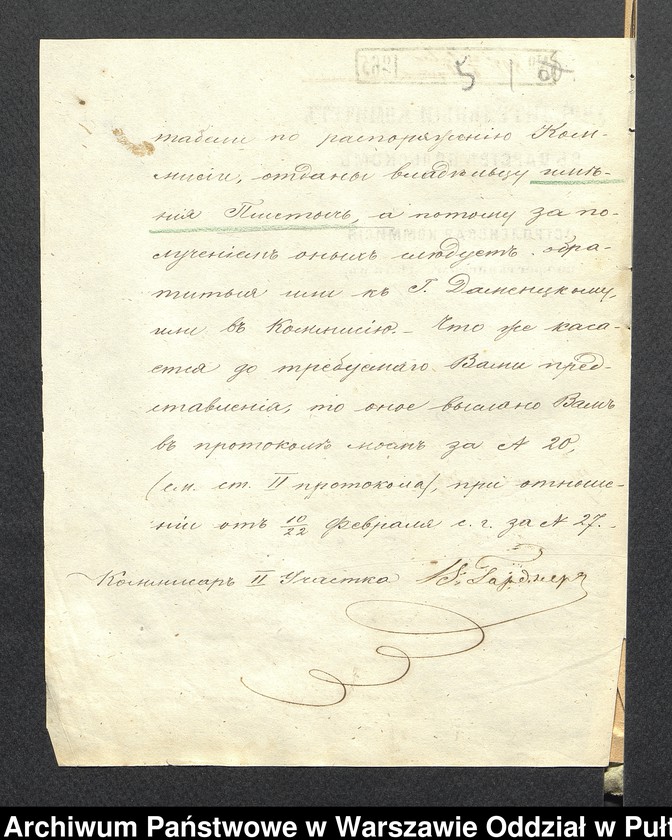 5
табели по распоряженію Ком-
мисіи, отданы владѣльцу имѣ-
нія, а потому за по-
лученіемъ оныхъ слѣдуетъ обра-
титься или къ Г.
или въ Коммисію. – Что же каса-
ется до требуемаго Вами пред-
ставленія, то оное выслано Вамъ
въ протоколѣ моемъ за № 20,
(см. ст. II протокола), при отноше-
ніи отъ 10/22 Февраля с. г. за № 27.
Коммисаръ II Участка
Archiwum Państwowe w Warszawie Oddział w Puł